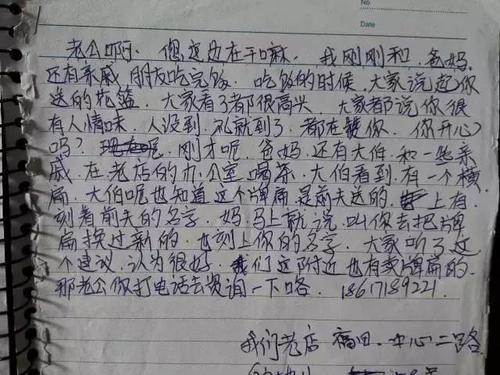 No
Date
老公啊、您这边在干嘛。我刚刚和、爸妈.
还有亲戚 朋友吃完饭. 吃饭的时候.大家说起你
送的花篮. 大家看了都很高兴. 大家都说你很
有人情味. 人没到.礼就到了.都在赞你. 你开心
吗? 刚才呢.爸妈.还有大伯.和一些亲
戚.在老店的办公室喝茶.大伯看到.有一个横
扁.大伯呢也知道.这个牌扁是前夫送的. 上有
刻着前夫的名字. 妈马上就说.叫你去把牌
扁换过新的.也刻上你的名字. 大家听了这
个建议.认为很好. 我们这附近也有卖牌扁的.
那老公你打电话去资询一下咯. 18617189221.
我们老店 福田.中心二路